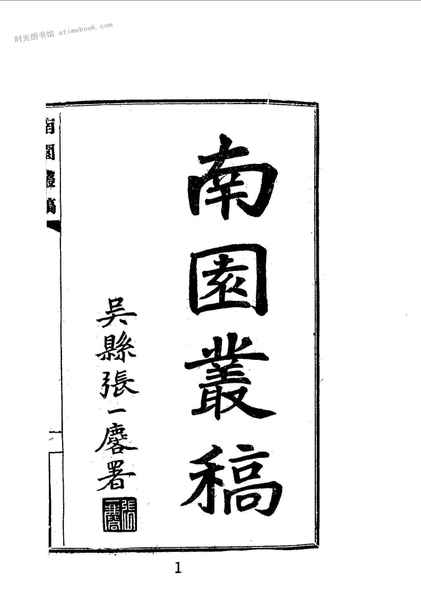 时光图书馆 atimebook.com
南園叢稿
吳縣張一麐署
南園叢稿
1